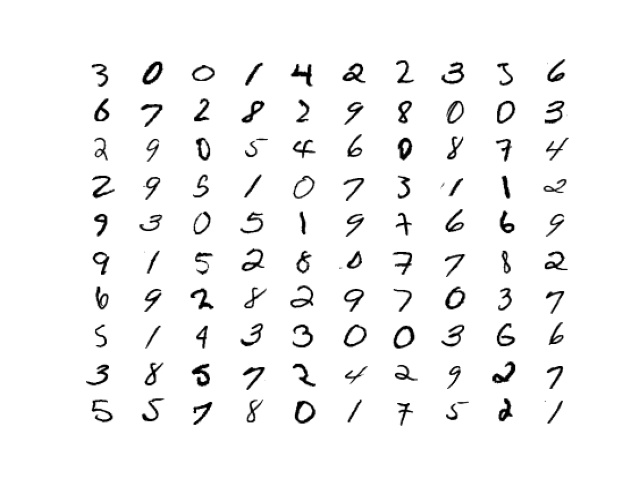 3 0 0 1 4 2 2 3 5 6
6 7 2 8 2 9 8 0 0 3
2 9 0 5 4 6 0 8 7 4
2 9 5 1 0 7 3 1 1 2
9 3 0 5 1 9 7 6 6 9
9 1 5 2 8 0 7 7 8 2
6 9 2 8 2 9 7 0 3 7
5 1 4 3 3 0 0 3 6 6
3 8 5 7 2 4 2 9 2 7
5 5 7 8 0 1 7 5 2 1